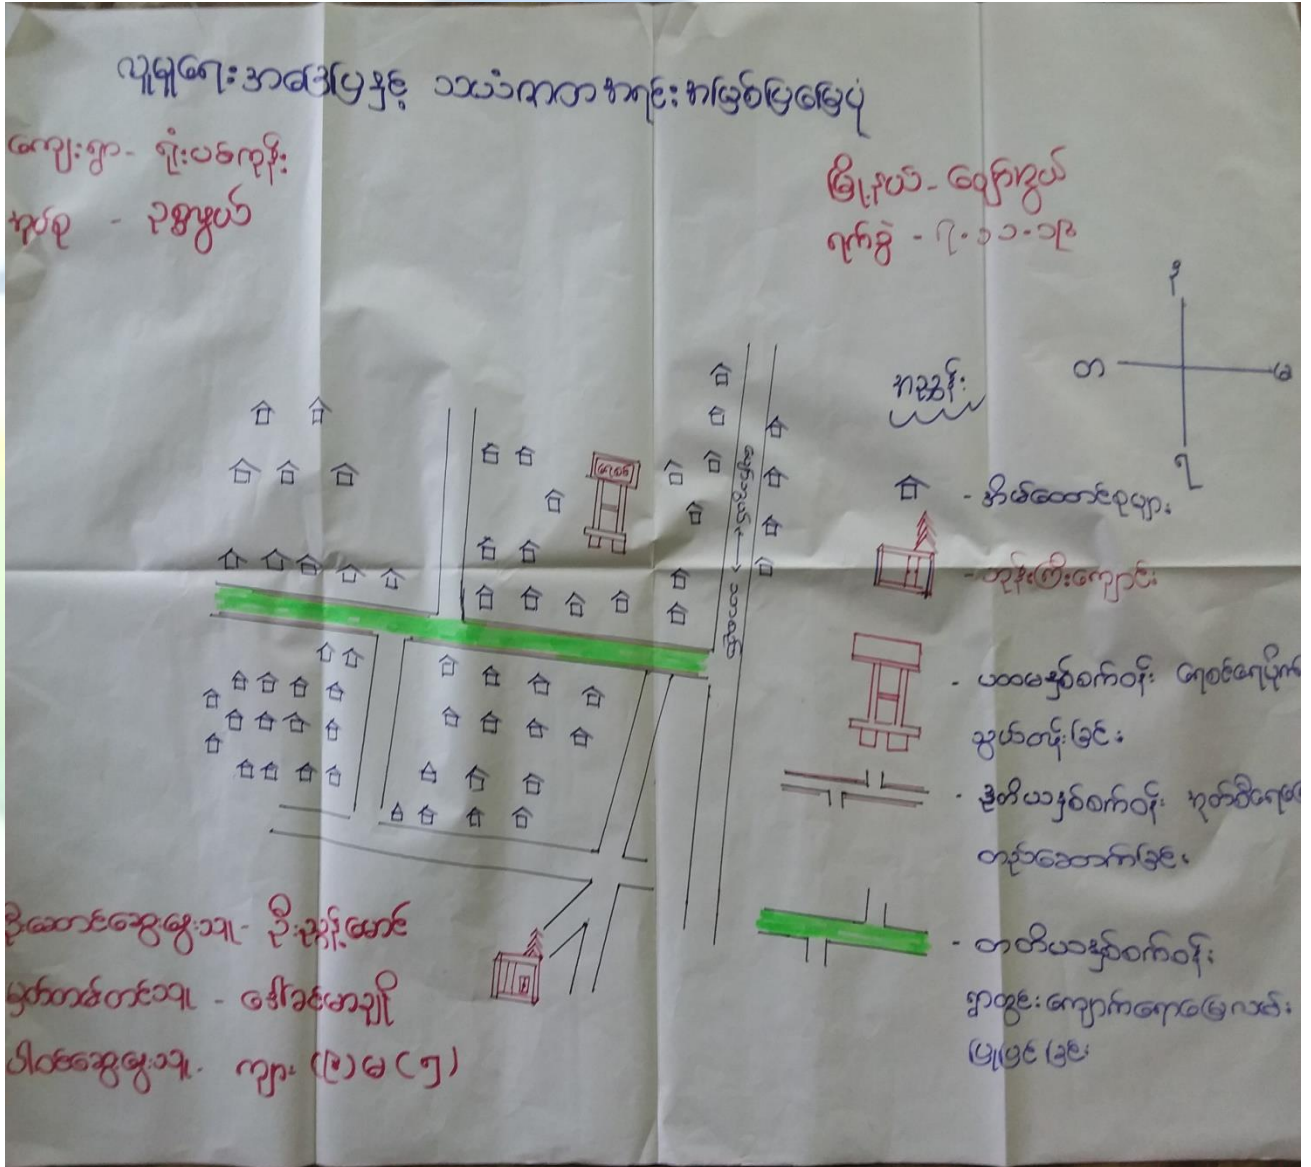 လူမှုရေးအခြေပြနှင့် သယံဇာတအရင်းအမြစ်ပြမြေပုံ
ကျေးရွာ - ရုံးပင်ကုန်း
အုပ်စု - ဥရွှေဲ
မြို့နယ် -
ရက်စွဲ - ၇.၁၁.၁၉
အညွှန်း
တ
- အိမ်ထောင်စုများ
ရေစင်
- ဘုန်းကြီးကျောင်း
- ပထမနှစ်စက်ဝန်း ရေစင်ရေပိုက်
သွယ်တန်းခြင်း
- ဒုတိယနှစ်စက်ဝန်း
တည်ဆောက်ခြင်း
- တတိယနှစ်စက်ဝန်း
ရွာတွင်းကျောက်ချောမြေလမ်း
ပြုပြင်ခြင်း
ဦးဆောင်ဆွေးနွေးသူ - ဦးညွန့်မောင်
မှတ်တမ်တင်သူ - ဒေါ်ခင်မာချို
ပါဝင်ဆွေးနွေးသူ - ကျား (၉) မ (၅)